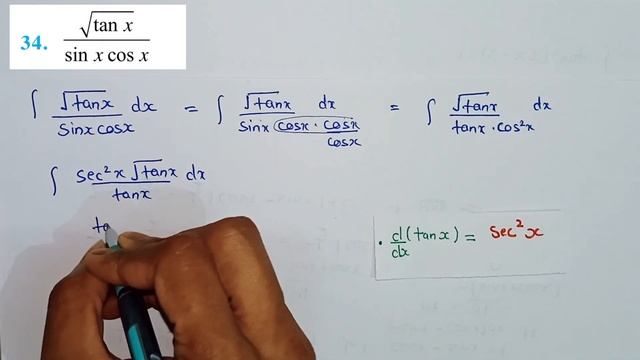 34. √tan x / sin x cos x
∫ √tanx / sinx cosx dx = ∫ √tanx / sinx cosx · cosx / cosx dx = ∫ √tanx / tanx · cos²x dx
∫ sec²x √tanx / tanx dx
ta
· d/dx (tanx) = sec²x